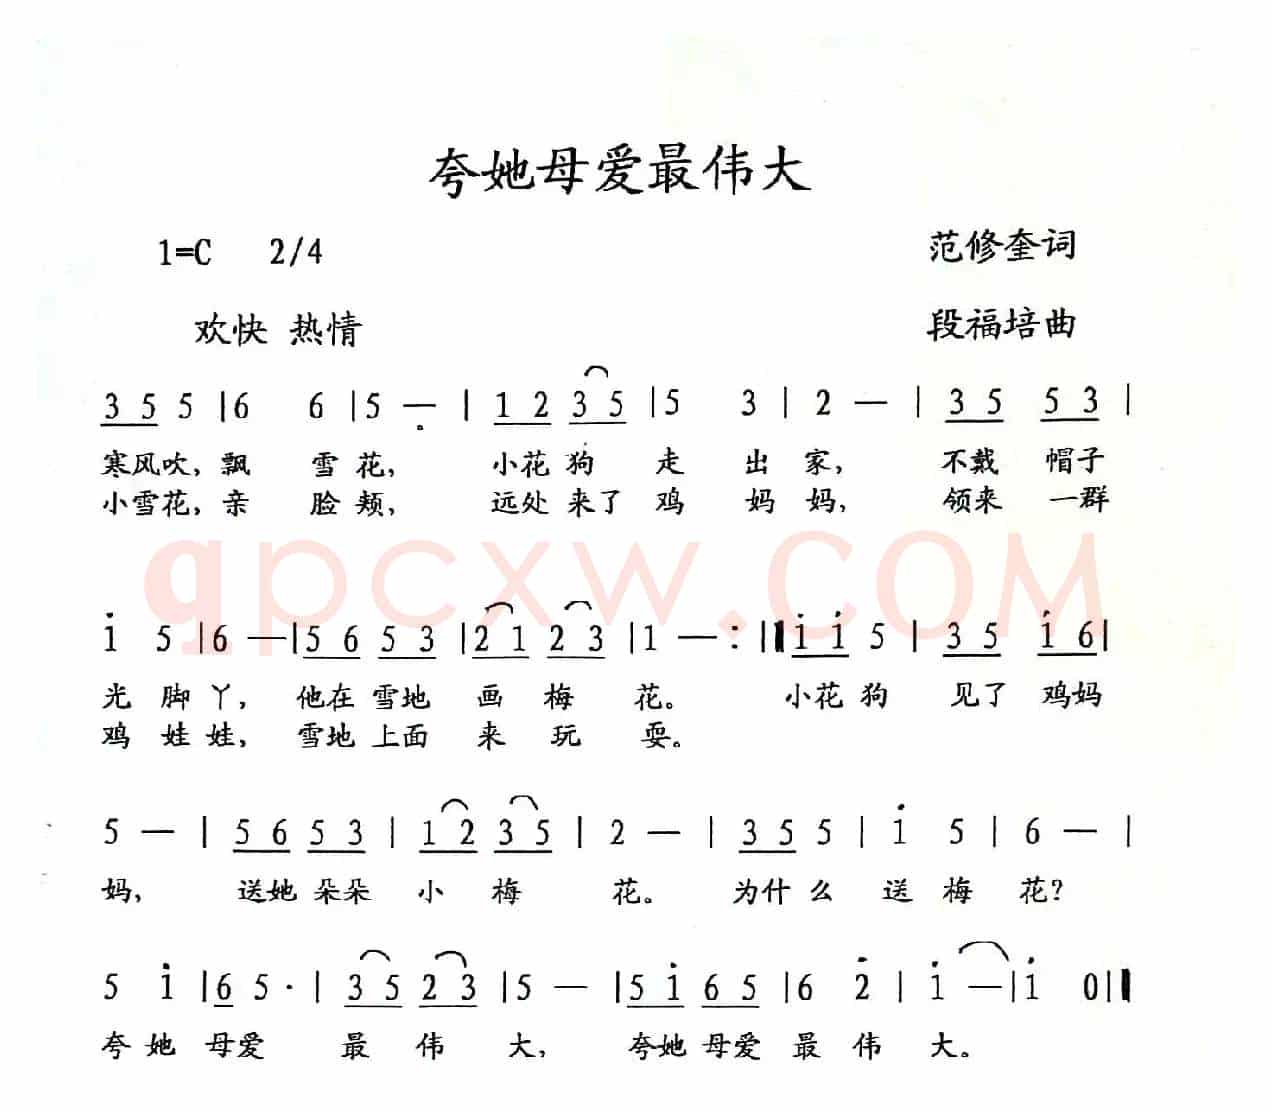 夸她母爱最伟大
1=C 2/4 范修奎词
欢快 热情 段福培曲
3 5 5 |6 6 |5 — | 1 2 3 5 |5 3 | 2 — | 3 5 5 3 |
寒风吹，飘 雪花， 小花狗 走 出 家， 不戴 帽子
小雪花，亲 脸颊， 远处来了鸡 妈 妈， 领来 一群
qpcxw.COM
i 5 |6 —|5 6 5 3 |2 1 2 3 |1 — :‖ i i 5 | 3 5 i 6|
光 脚 丫， 他在 雪地 画 梅 花。 小花 狗 见了 鸡妈
鸡 娃 娃， 雪地 上面 来 玩 耍。
5 — | 5 6 5 3 | 1 2 3 5 | 2 — | 3 5 5 | i 5 | 6 — |
妈， 送她 朵朵 小 梅 花。 为什 么 送 梅 花？
5 i |6 5 · | 3 5 2 3 |5 — |5 i 6 5 |6 2 | i —|i 0‖
夸 她 母爱 最 伟 大， 夸她 母爱 最 伟 大。